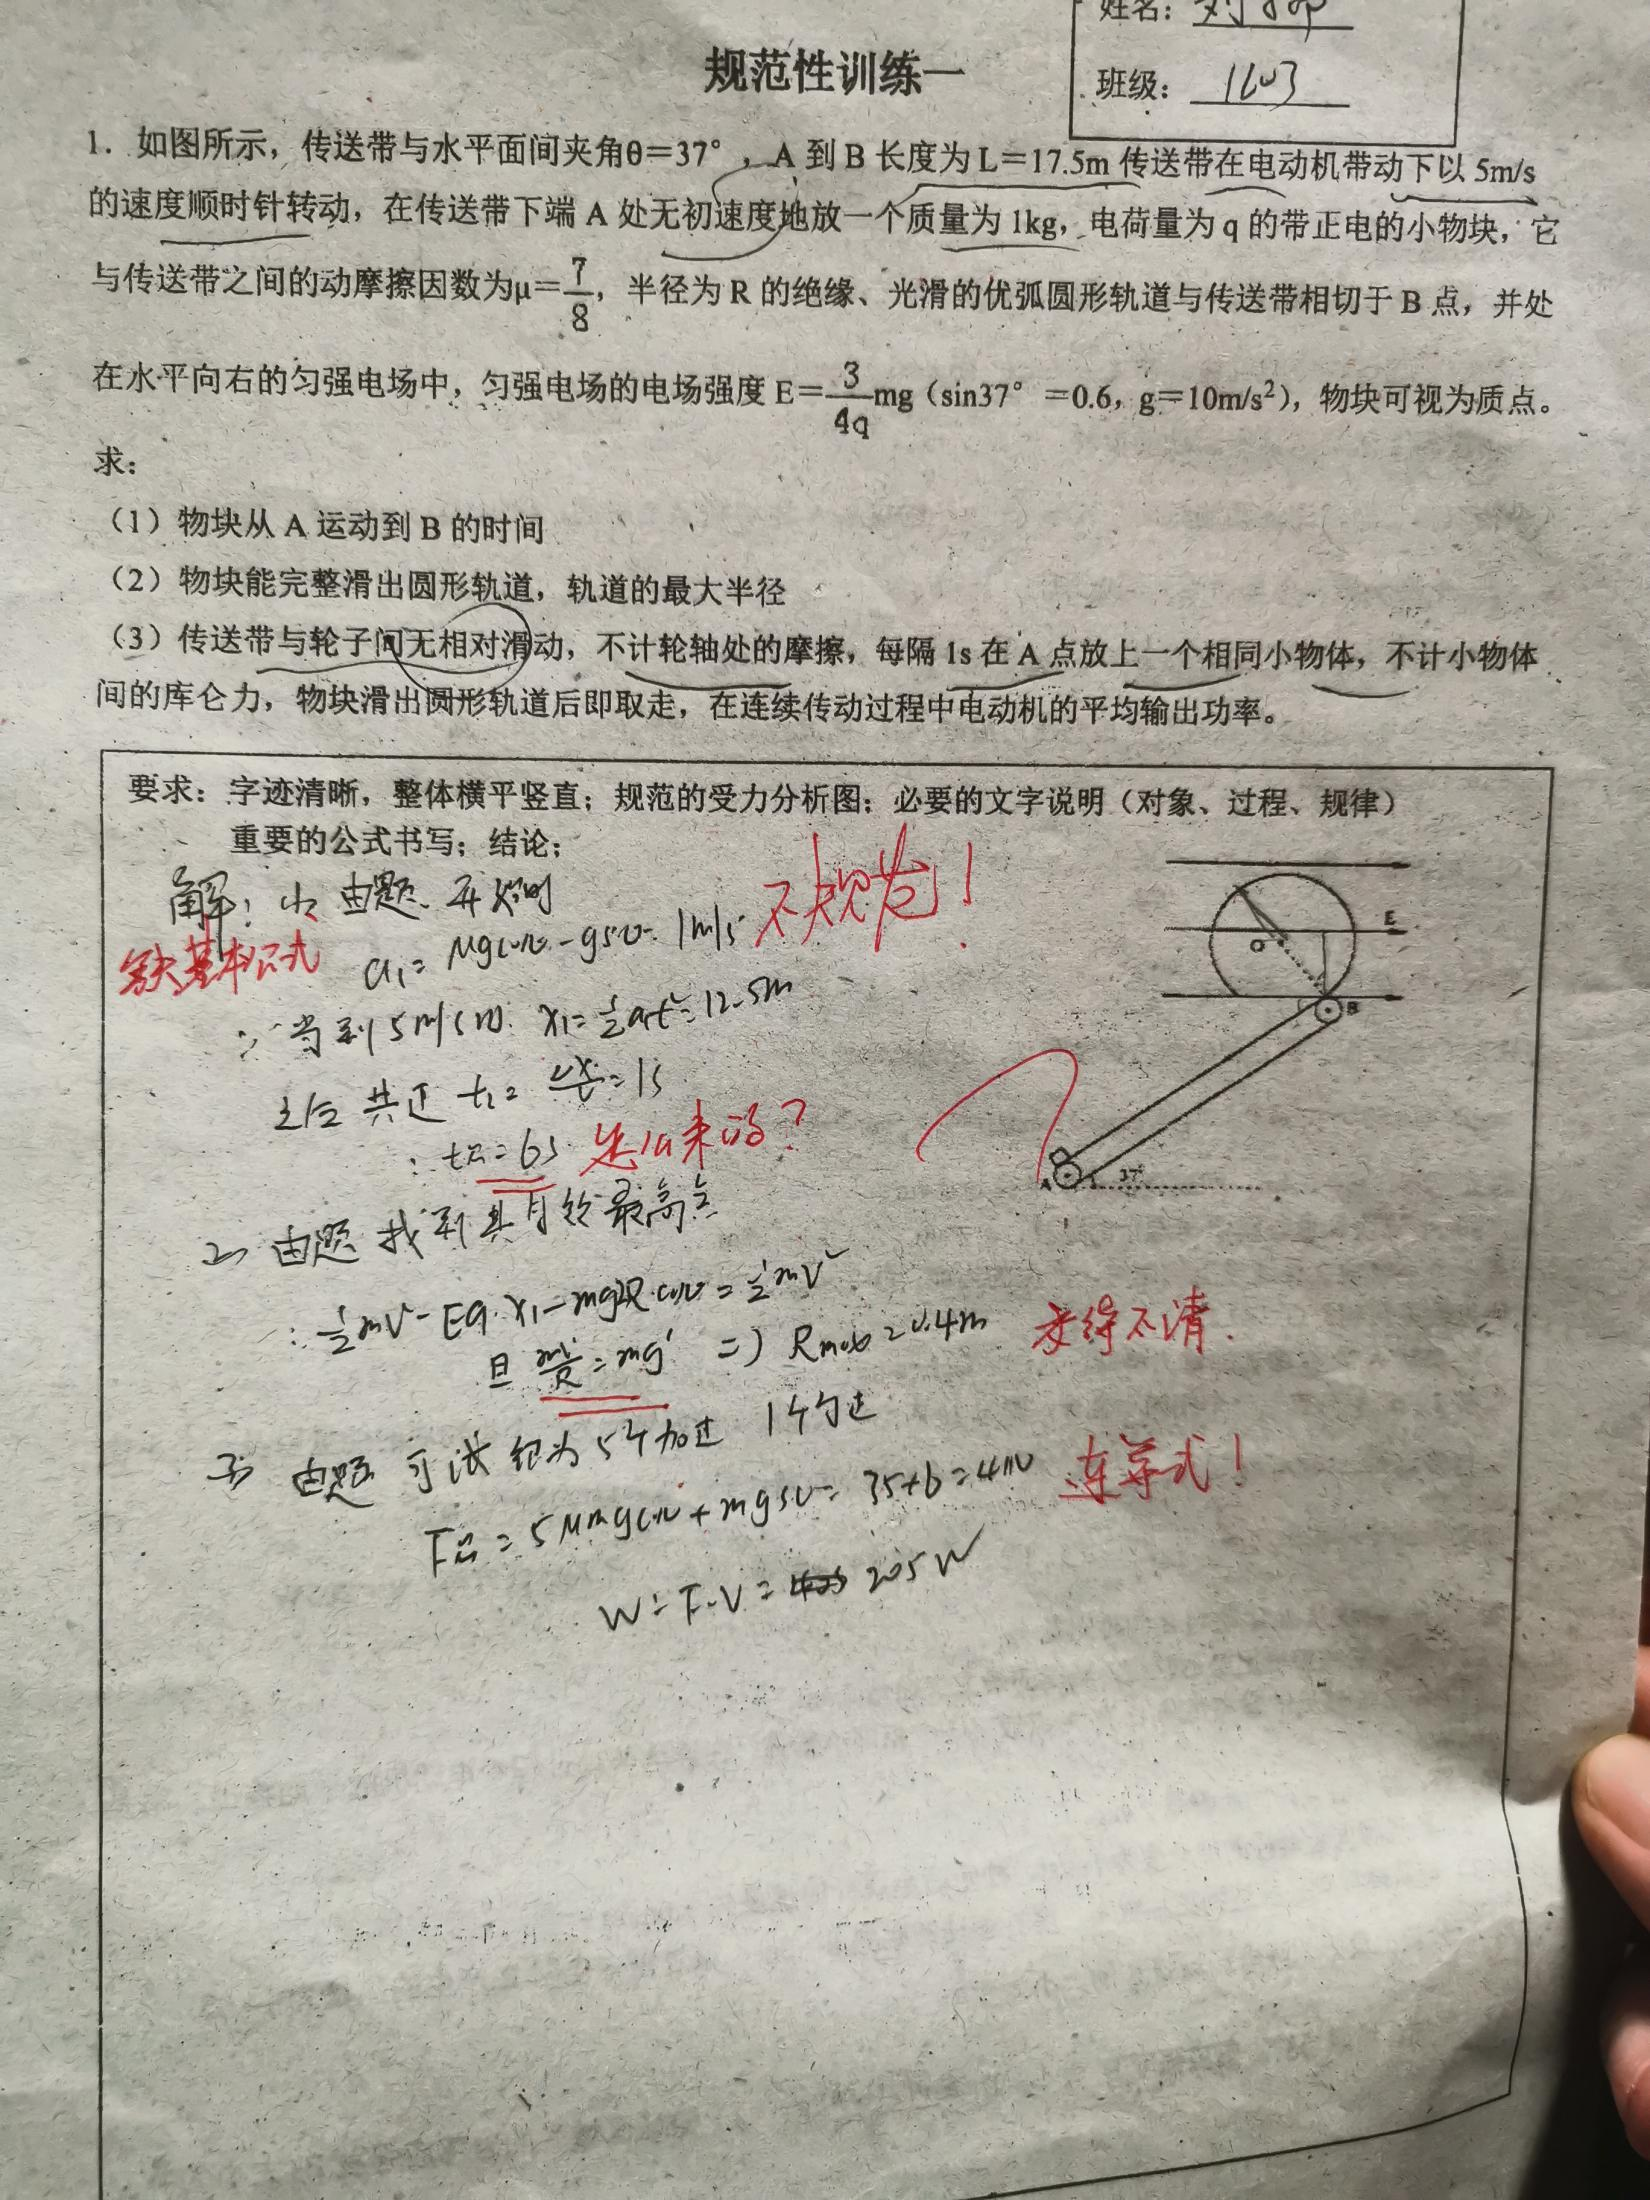 姓名：
规范性训练一
班级：1603
1. 如图所示，传送带与水平面间夹角θ=37°，A 到 B 长度为 L=17.5m 传送带在电动机带动下以 5m/s
的速度顺时针转动，在传送带下端 A 处无初速度地放一个质量为 1kg，电荷量为 q 的带正电的小物块，它
与传送带之间的动摩擦因数为μ=7/8，半径为 R 的绝缘、光滑的优弧圆形轨道与传送带相切于 B 点，并处
在水平向右的匀强电场中，匀强电场的电场强度 E=3/4q mg（sin37°=0.6，g=10m/s²），物块可视为质点。
求：
（1）物块从 A 运动到 B 的时间
（2）物块能完整滑出圆形轨道，轨道的最大半径
（3）传送带与轮子间无相对滑动，不计轮轴处的摩擦，每隔 1s 在 A 点放上一个相同小物体，不计小物体
间的库仑力，物块滑出圆形轨道后即取走，在连续传动过程中电动机的平均输出功率。
要求：字迹清晰，整体横平竖直；规范的受力分析图；必要的文字说明（对象、过程、规律）
重要的公式书写；结论；
解：由题 开始时
不规范！
缺基本公式
a₁=
1m/s
E
O
当到5m/s时 x₁=½a₁t²=12.5m
B
t₂= =1s
t总=6s 怎么来的？
A 37°
由题 找到其 最高点
½mv²-Eq·x₁-mg2R = ½mv²
且 =mg' => Rmax=0.4m 书得不清.
由题 可 为5个加速 1个匀速
F总=5μmg +mg =35+6=41N 连等式！
W=F·V= 205W